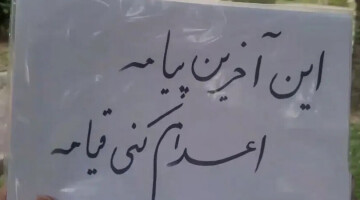 این آخرین پیامه
اعدام کنی قیامه